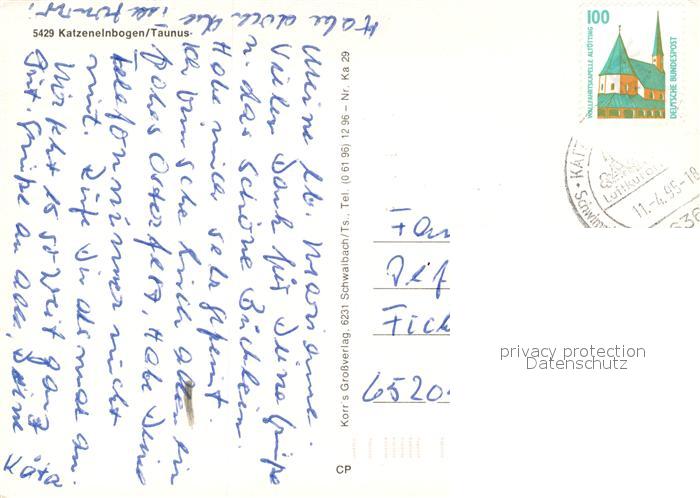 5429 Katzenelnbogen/Taunus
Meine lb. Marianne.
Vielen Dank für Deine Grüße
u. das schöne Büchlein.
Habe mich sehr gefreut.
Ich wünsche Euch allen ein
frohes Osterfest, Habe Deine
Telefonnummer nicht
mit. Rufe Du doch mal an.
Mir geht es soweit ganz
gut. Grüße an alle, Deine
Käta
Habe doch die
Korr's Großverlag, 6231 Schwalbach/Ts., Tel. (0 61 96) 12 96 – Nr. Ka 29
CP
100
WALLFAHRTSKAPELLE ALTÖTTING
DEUTSCHE BUNDESPOST
Luftkurort
11.-4.95-18
Fam
Fich
6520
privacy protection
Datenschutz